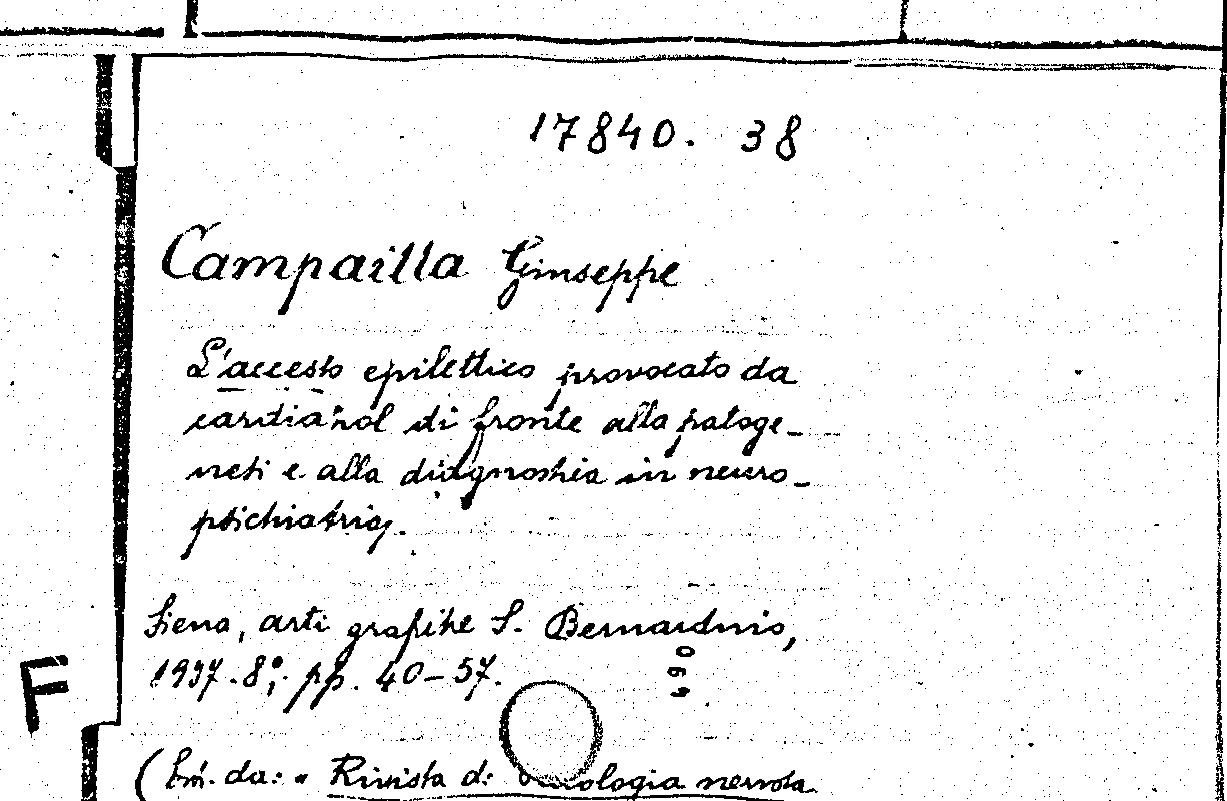 17840. 38
Campailla Giuseppe
L'accesso epilettico provocato da
cardiazol di fronte alla patoge-
nesi e alla diagnostica in neuro-
psichiatria.
Siena, arti grafiche S. Bernardino,
1937. 8°; pp. 40-57.
069
F
(Est. da: " Rivista di nervosa